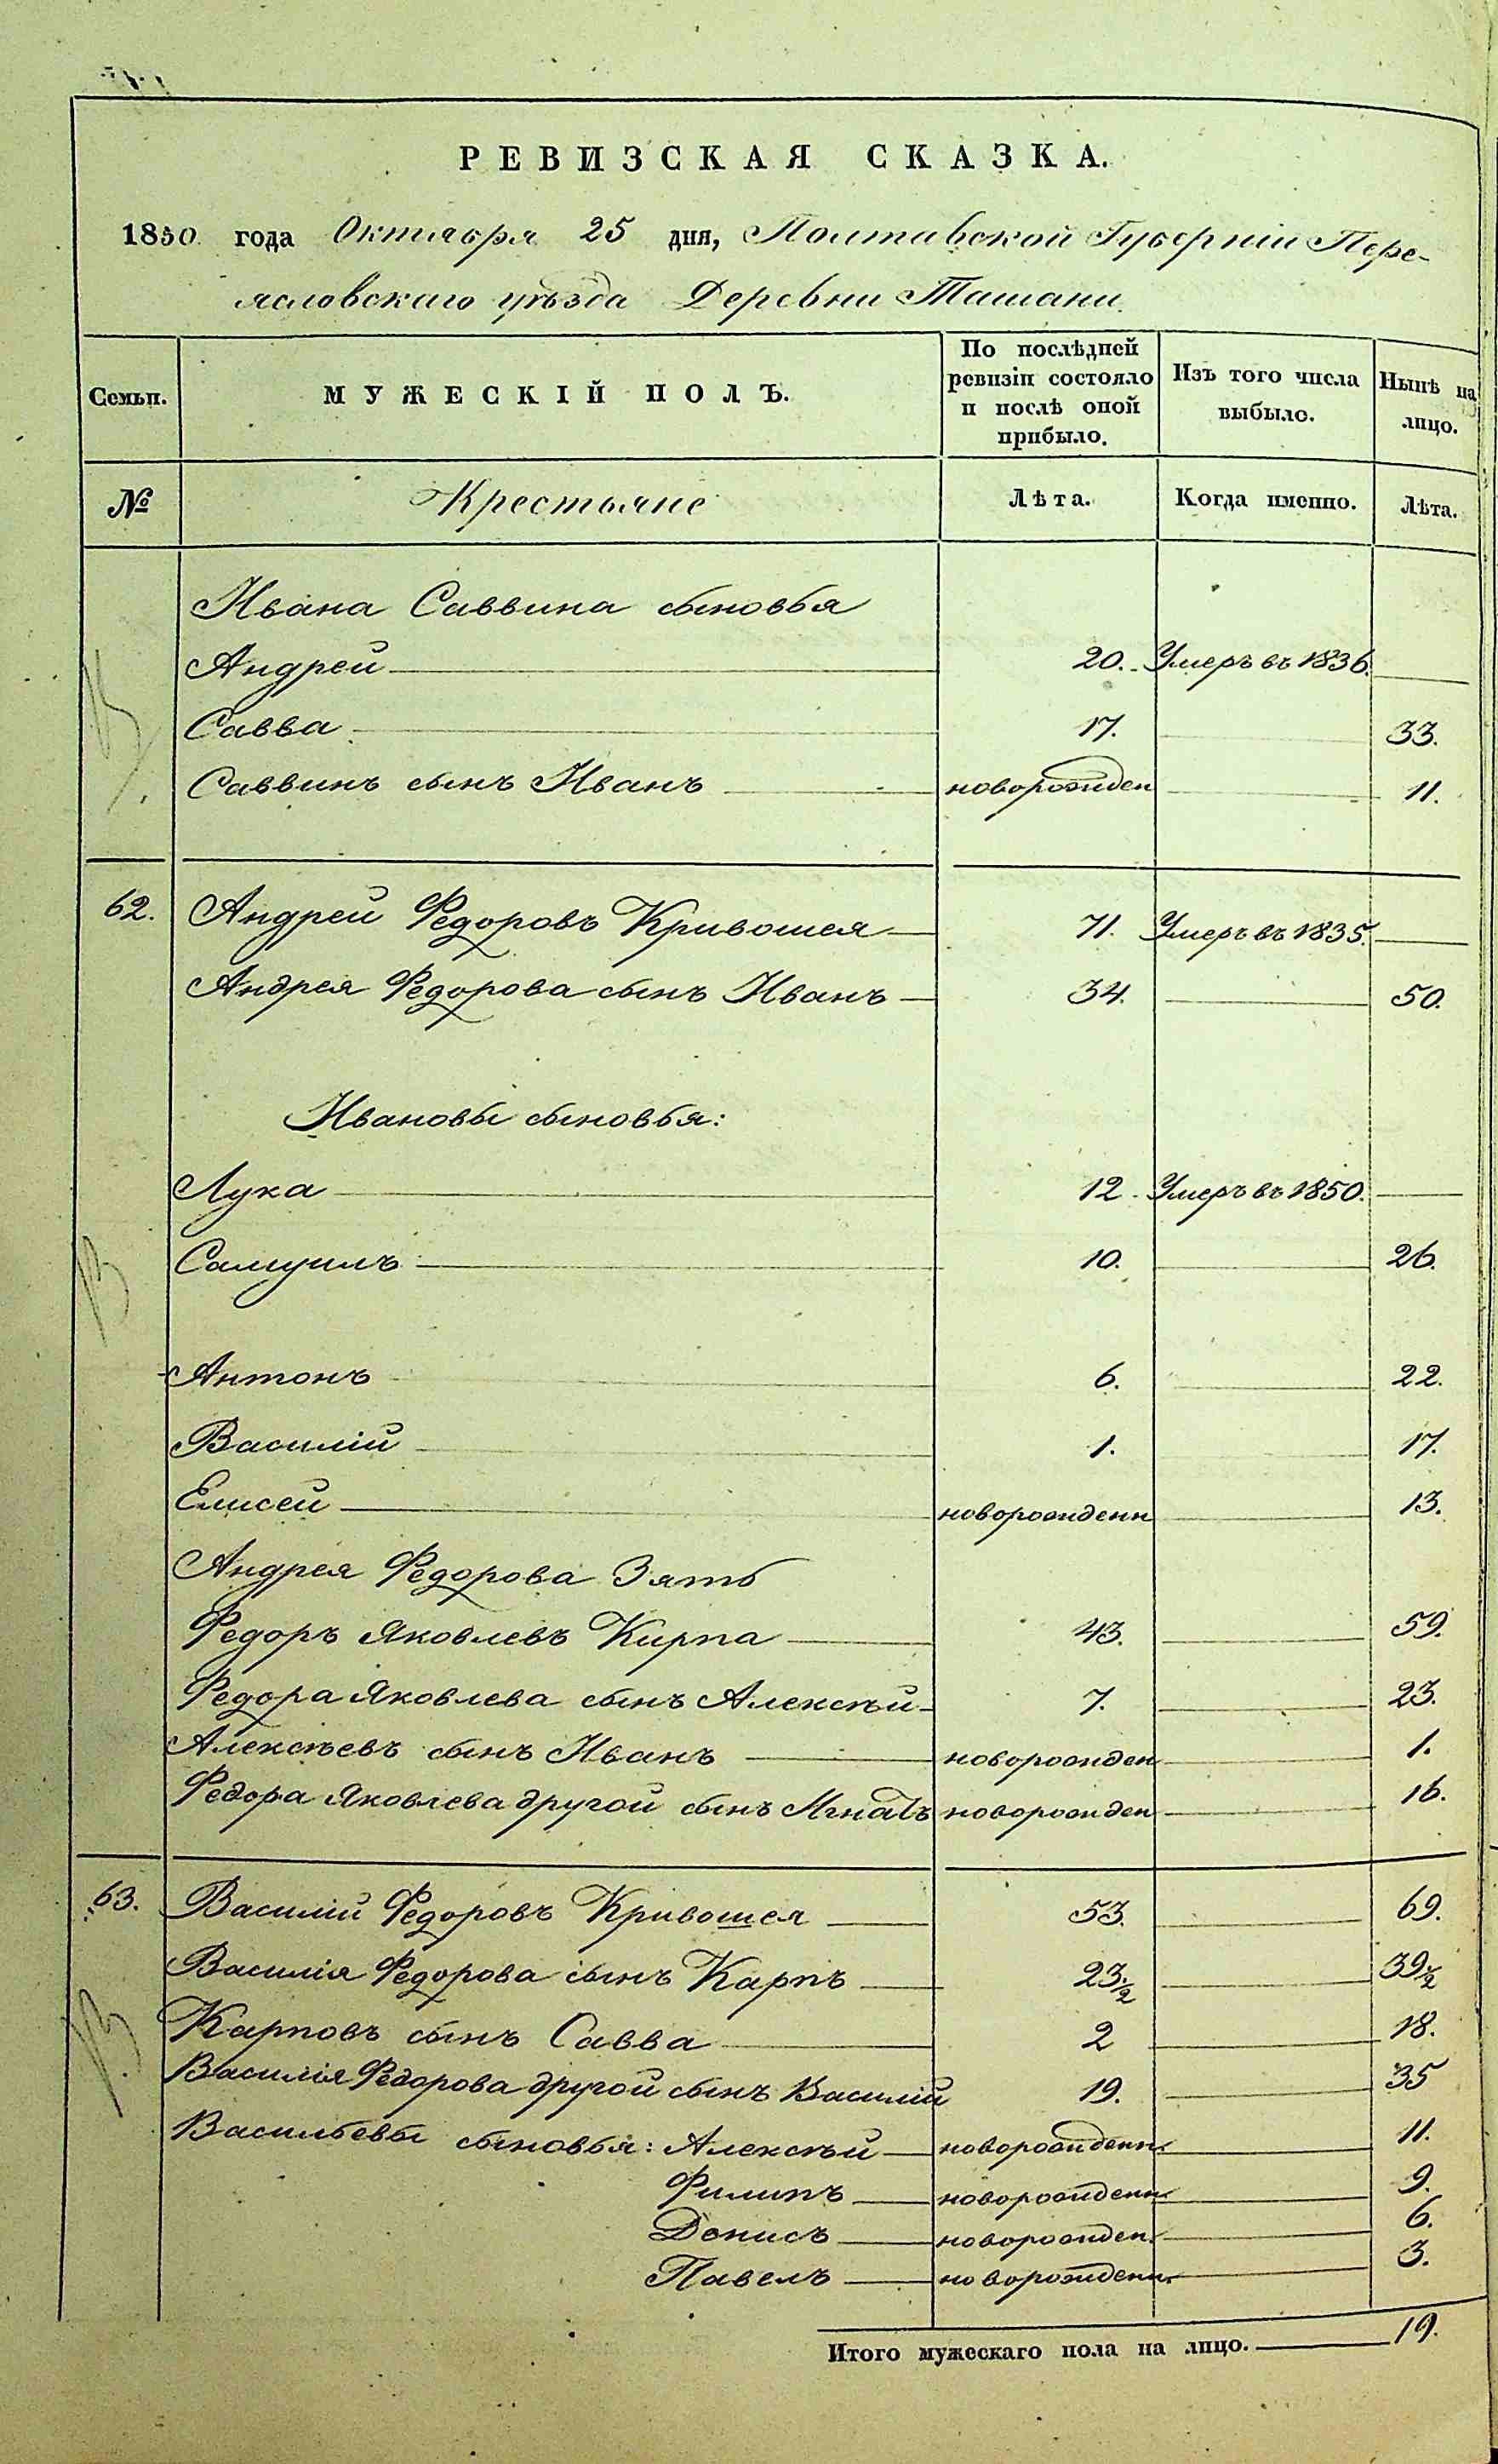 РЕВИЗСКАЯ СКАЗКА.
1850 года Октября 25 дня, Полтавской Губерніи Пере-
яславскаго уѣзда Деревни Ташани
Семьи.
МУЖЕСКІЙ ПОЛЪ.
По послѣдней ревизіи состояло и послѣ оной прибыло.
Изъ того числа выбыло.
Нынѣ на лицо.
№ Крестьяне Лѣта. Когда именно. Лѣта.
Ивана Саввина сыновья
Андрей 20. Умеръ въ 1836.
Савва 17. 33.
Саввинъ сынъ Иванъ новорожден 11.
62. Андрей Федоровъ Кривошея 71. Умеръ въ 1835.
Андрея Федорова сынъ Иванъ 34. 50.
Ивановы сыновья:
Лука 12. Умеръ въ 1850.
Самуилъ 10. 26.
Антонъ 6. 22.
Василій 1. 17.
Елисей новорожденн 13.
Андрея Федорова Зять
Федоръ Яковлевъ Кирпа 43. 59.
Федора Яковлева сынъ Алексѣй 7. 23.
Алексѣевъ сынъ Иванъ новорожден 1.
Федора Яковлева другой сынъ Игнатъ новорожден 16.
63. Василій Федоровъ Кривошея 53. 69.
Василія Федорова сынъ Карпъ 23½ 39½
Карповъ сынъ Савва 2 18.
Василія Федорова другой сынъ Василій 19. 35
Васильевы сыновья: Алексѣй новорожденн. 11.
Филипъ новорожденн. 9.
Денисъ новорожден. 6.
Павелъ новорожденн. 3.
Итого мужескаго пола на лицо. 19.